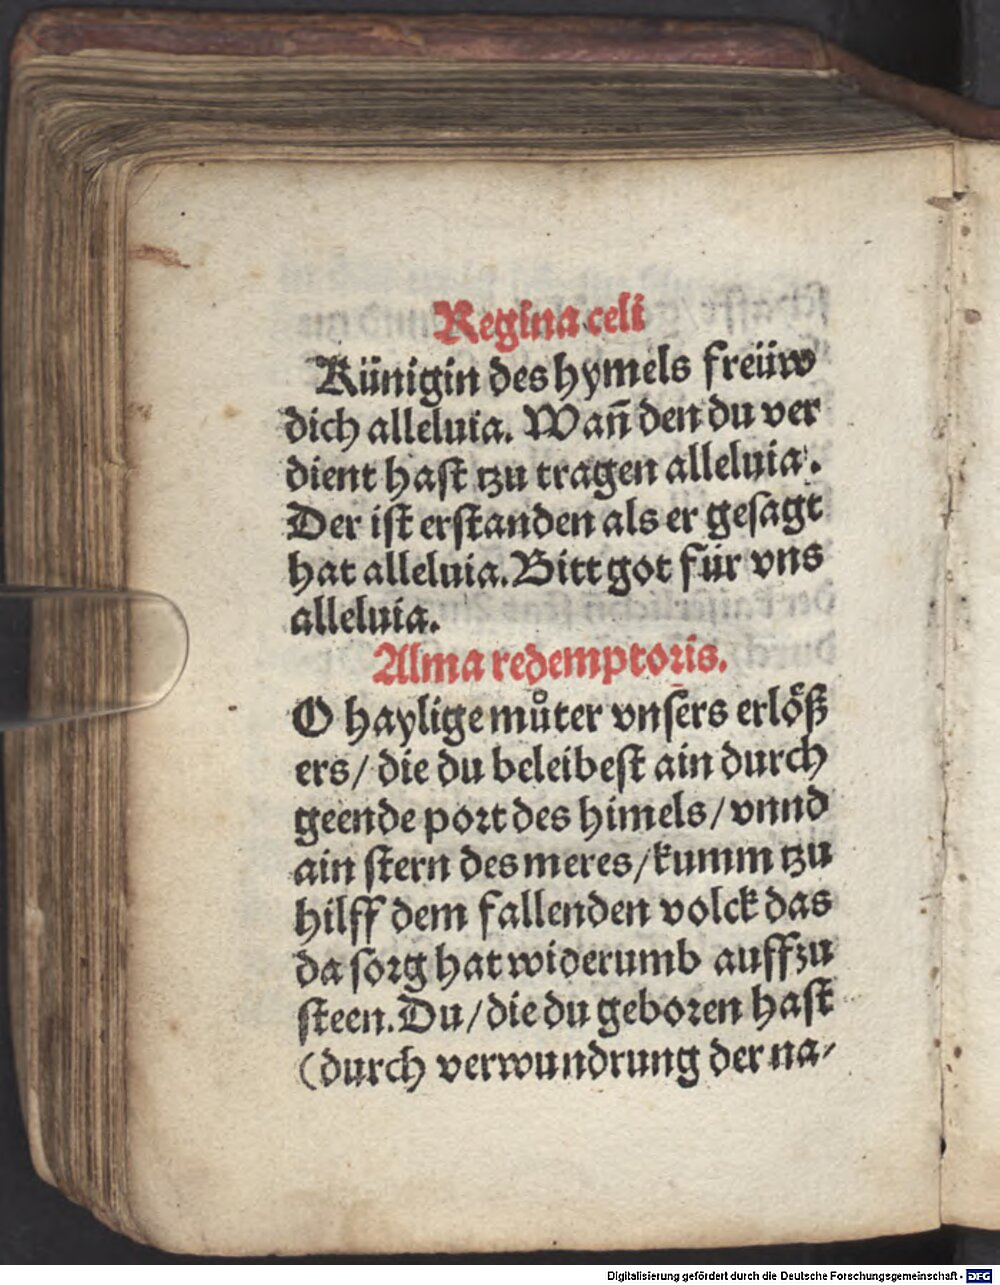 Regina celi
Künigin des hymels freüw
dich alleluia. Wañ den du ver
dient hast tzu tragen alleluia.
Der ist erstanden als er gesagt
hat alleluia. Bitt got für vns
alleluia.
Alma redemptoris.
O haylige můter vnsers erlöß
ers / die du beleibest ain durch
geende port des himels / vnnd
ain stern des meres / kumm tzu
hilff dem fallenden volck das
da sorg hat widerumb auffzu
steen. Du / die du geboren hast
(durch verwundrung der na⸗
Digitalisierung gefördert durch die Deutsche Forschungsgemeinschaft - DFG